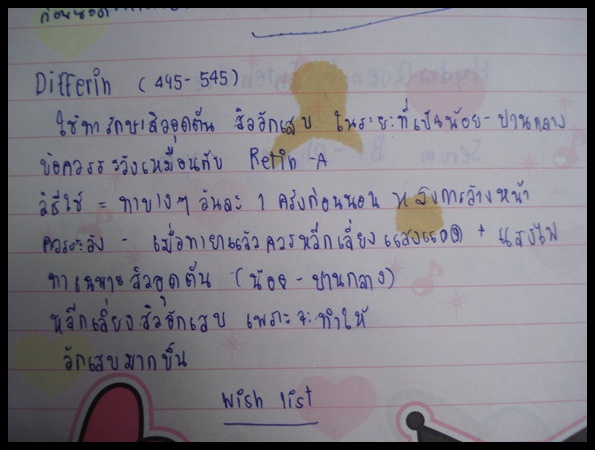 Differin (445-545)
ใช้ทารักษาสิวอุดตัน สิวอักเสบ ในระยะที่เป็นน้อย-ปานกลาง
ข้อควรระวังเหมือนกับ Retin-A
วิธีใช้ = ทาบางๆ วันละ 1 ครั้งก่อนนอน หลังการล้างหน้า
ควรระวัง - เมื่อทายาแล้วควรหลีกเลี่ยงแสงแดด + แสงไฟ
ทาเฉพาะสิวอุดตัน (น้อย-ปานกลาง)
หลีกเลี่ยงสิวอักเสบ เพราะจะทำให้
อักเสบมากขึ้น
Wish list